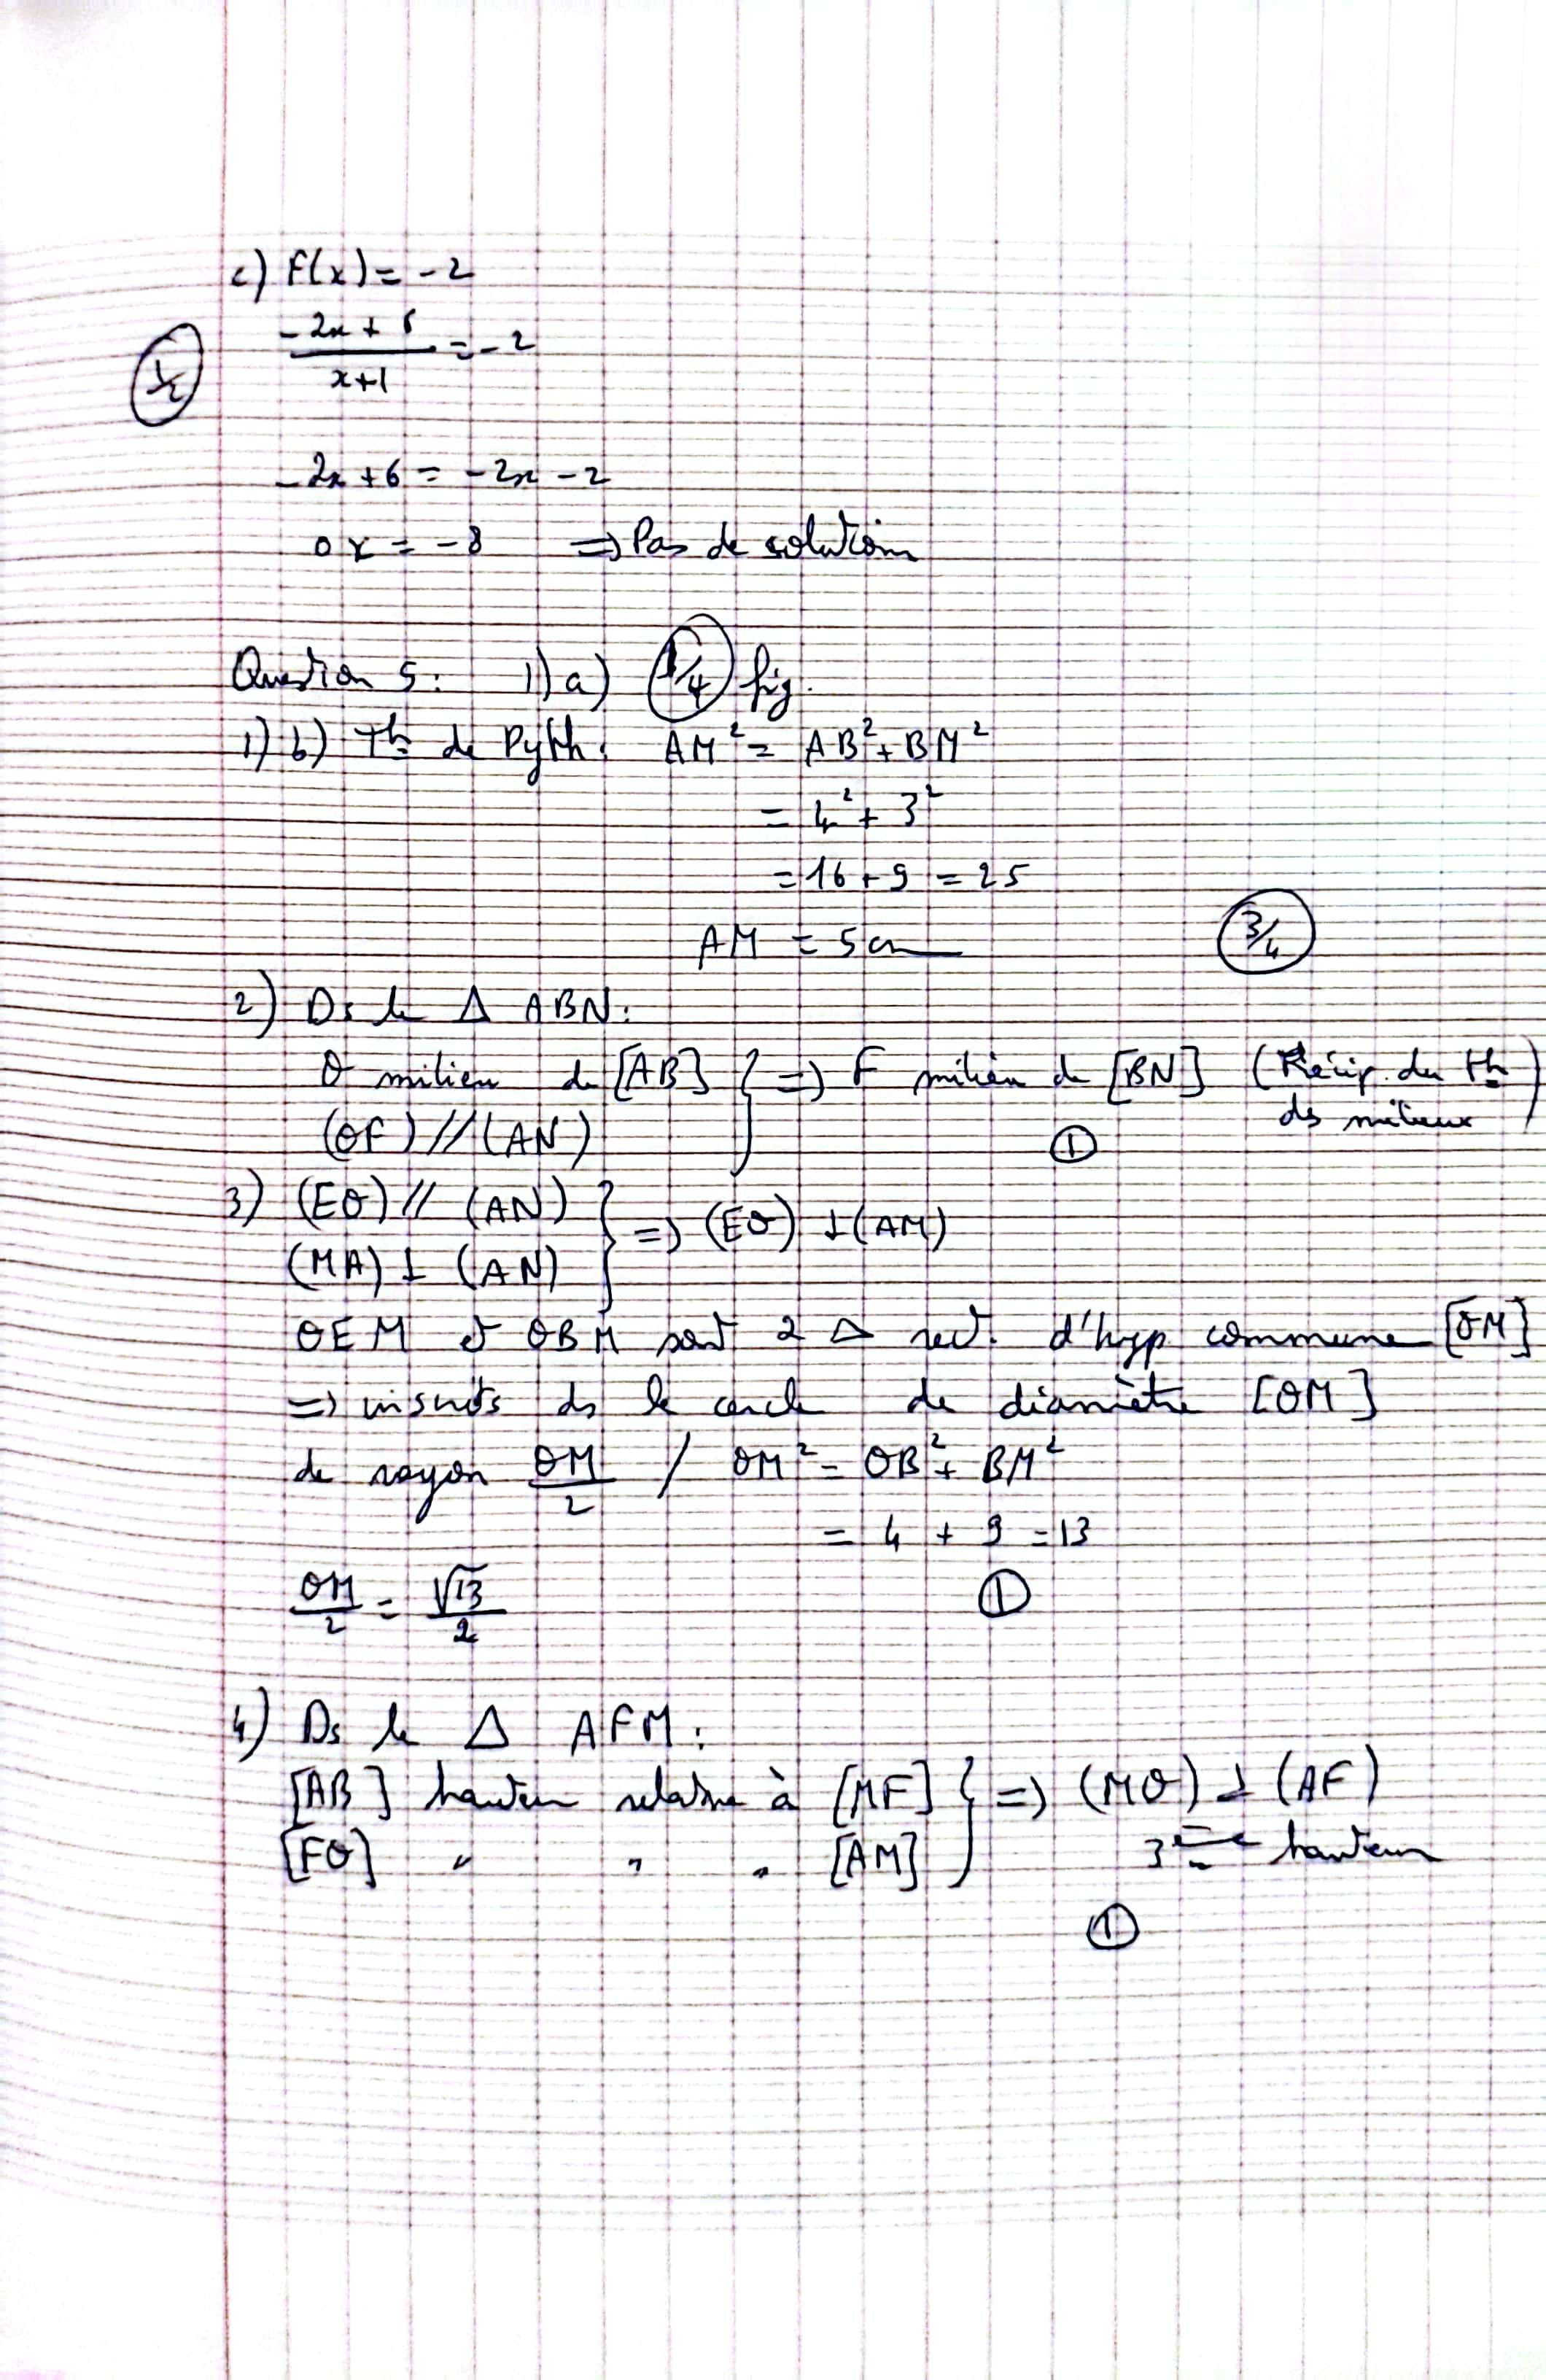 c) F(x) = -2
(-2x + 6)/(x+1) = -2
1/2
-2x + 6 = -2x - 2
0x = -8 => Pas de solution
Question 5: 1) a) (1/4) fig.
1) b) Th de Pyth: AM² = AB² + BM²
= 4² + 3²
= 16 + 9 = 25
AM = 5 cm (3/4)
2) Ds le Δ ABN:
O milieu de [AB] } => F milieu de [BN] (Récip. du th
des milieux)
(OF) // (AN) (1)
3) (EO) // (AN) } => (EO) ⊥ (AM)
(MA) ⊥ (AN)
OEM et OBM sont 2 Δ rect. d'hyp commune [OM]
=> inscrits ds le cercle de diamètre [OM]
de rayon OM/2 / OM² = OB² + BM²
= 4 + 9 = 13
OM/2 = √13/2 (1)
4) Ds le Δ AFM:
[AB] hauteur relative à [MF] } => (MO) ⊥ (AF)
[FO] " " " [AM] 3ème hauteur
(1)